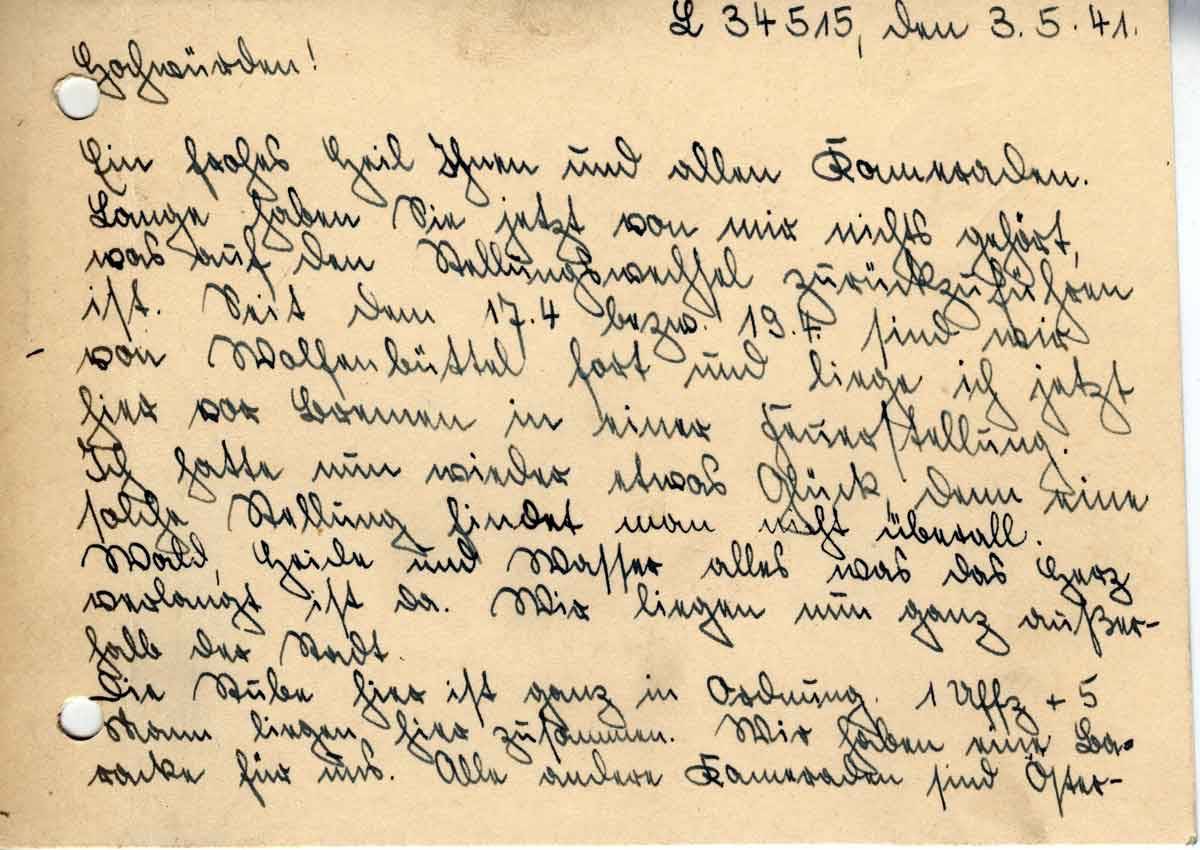 L 34515, den 3.5.41.
Hochwürden!
Ein frohes Heil Ihnen und allen Kameraden.
Lange haben Sie jetzt von mir nichts gehört,
was auf den Stellungswechsel zurückzuführen
ist. Seit dem 17.4 bezw. 19.4. sind wir
von Wolfenbüttel fort und liege ich jetzt
hier vor Bremen in einer Feuerstellung.
Ich hatte nun wieder etwas Glück, denn eine
solche Stellung findet man nicht überall.
Wald, Heide und Wasser alles was das Herz
verlangt ist da. Wir liegen nun ganz außer-
halb der Stadt.
Die Stube hier ist ganz in Ordnung. 1 Uffz + 5
Mann liegen hier zusammen. Wir haben eine Ba-
racke für uns. Alle andere Kameraden sind Öster-